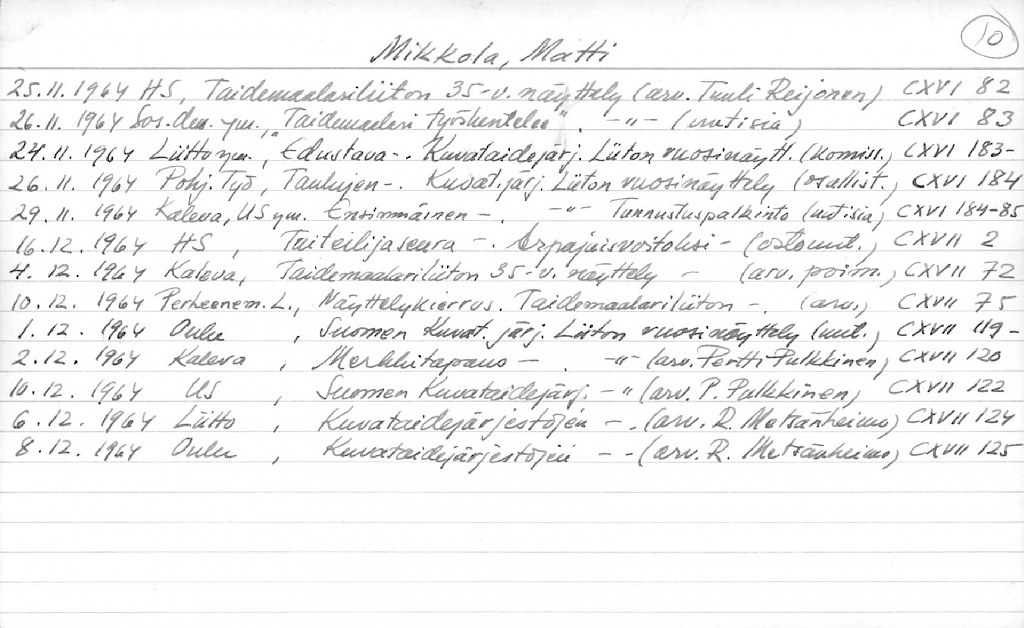 10
Mikkola, Matti
25.11.1964 HS, Taidemaalariliiton 35-v. näyttely (arv. Tuuli Reijonen) CXVI 82
26.11.1964 Sos.dem. ym., "Taidemaalari työskentelee", -"- (uutisia) CXVI 83
24.11.1964 Liitto ym., Edustava -. Kuvataidejärj. Liiton vuosinäytt. (komiss.) CXVI 183-
26.11.1964 Pohj. Työ, Taulujen -. Kuvat.järj. Liiton vuosinäyttely (osallist.) CXVI 184
29.11.1964 Kaleva, US ym. Ensimmäinen -. -"- Tunnustuspalkinto (uutisia) CXVI 184-85
16.12.1964 HS, Taiteilijaseura -. Arpajaisvoitoksi - (ostamt.) CXVII 2
4.12.1964 Kaleva, Taidemaalariliiton 35-v. näyttely - (arv. poim.) CXVII 72
10.12.1964 Perheenem. L., Näyttelykierros. Taidemaalariliiton -. (arv.) CXVII 75
1.12.1964 Oulu, Suomen Kuvat.järj. Liiton vuosinäyttely (uut.) CXVII 119-
2.12.1964 Kaleva, Merkkitapaus -. -"- (arv. Pertti Pulkkinen) CXVII 120
10.12.1964 US, Suomen Kuvataidejärj. -"- (arv. P. Pulkkinen) CXVII 122
6.12.1964 Liitto, Kuvataidejärjestöjen -. (arv. R. Metsänheimo) CXVII 124
8.12.1964 Oulu, Kuvataidejärjestöjen - - (arv. R. Metsänheimo) CXVII 125